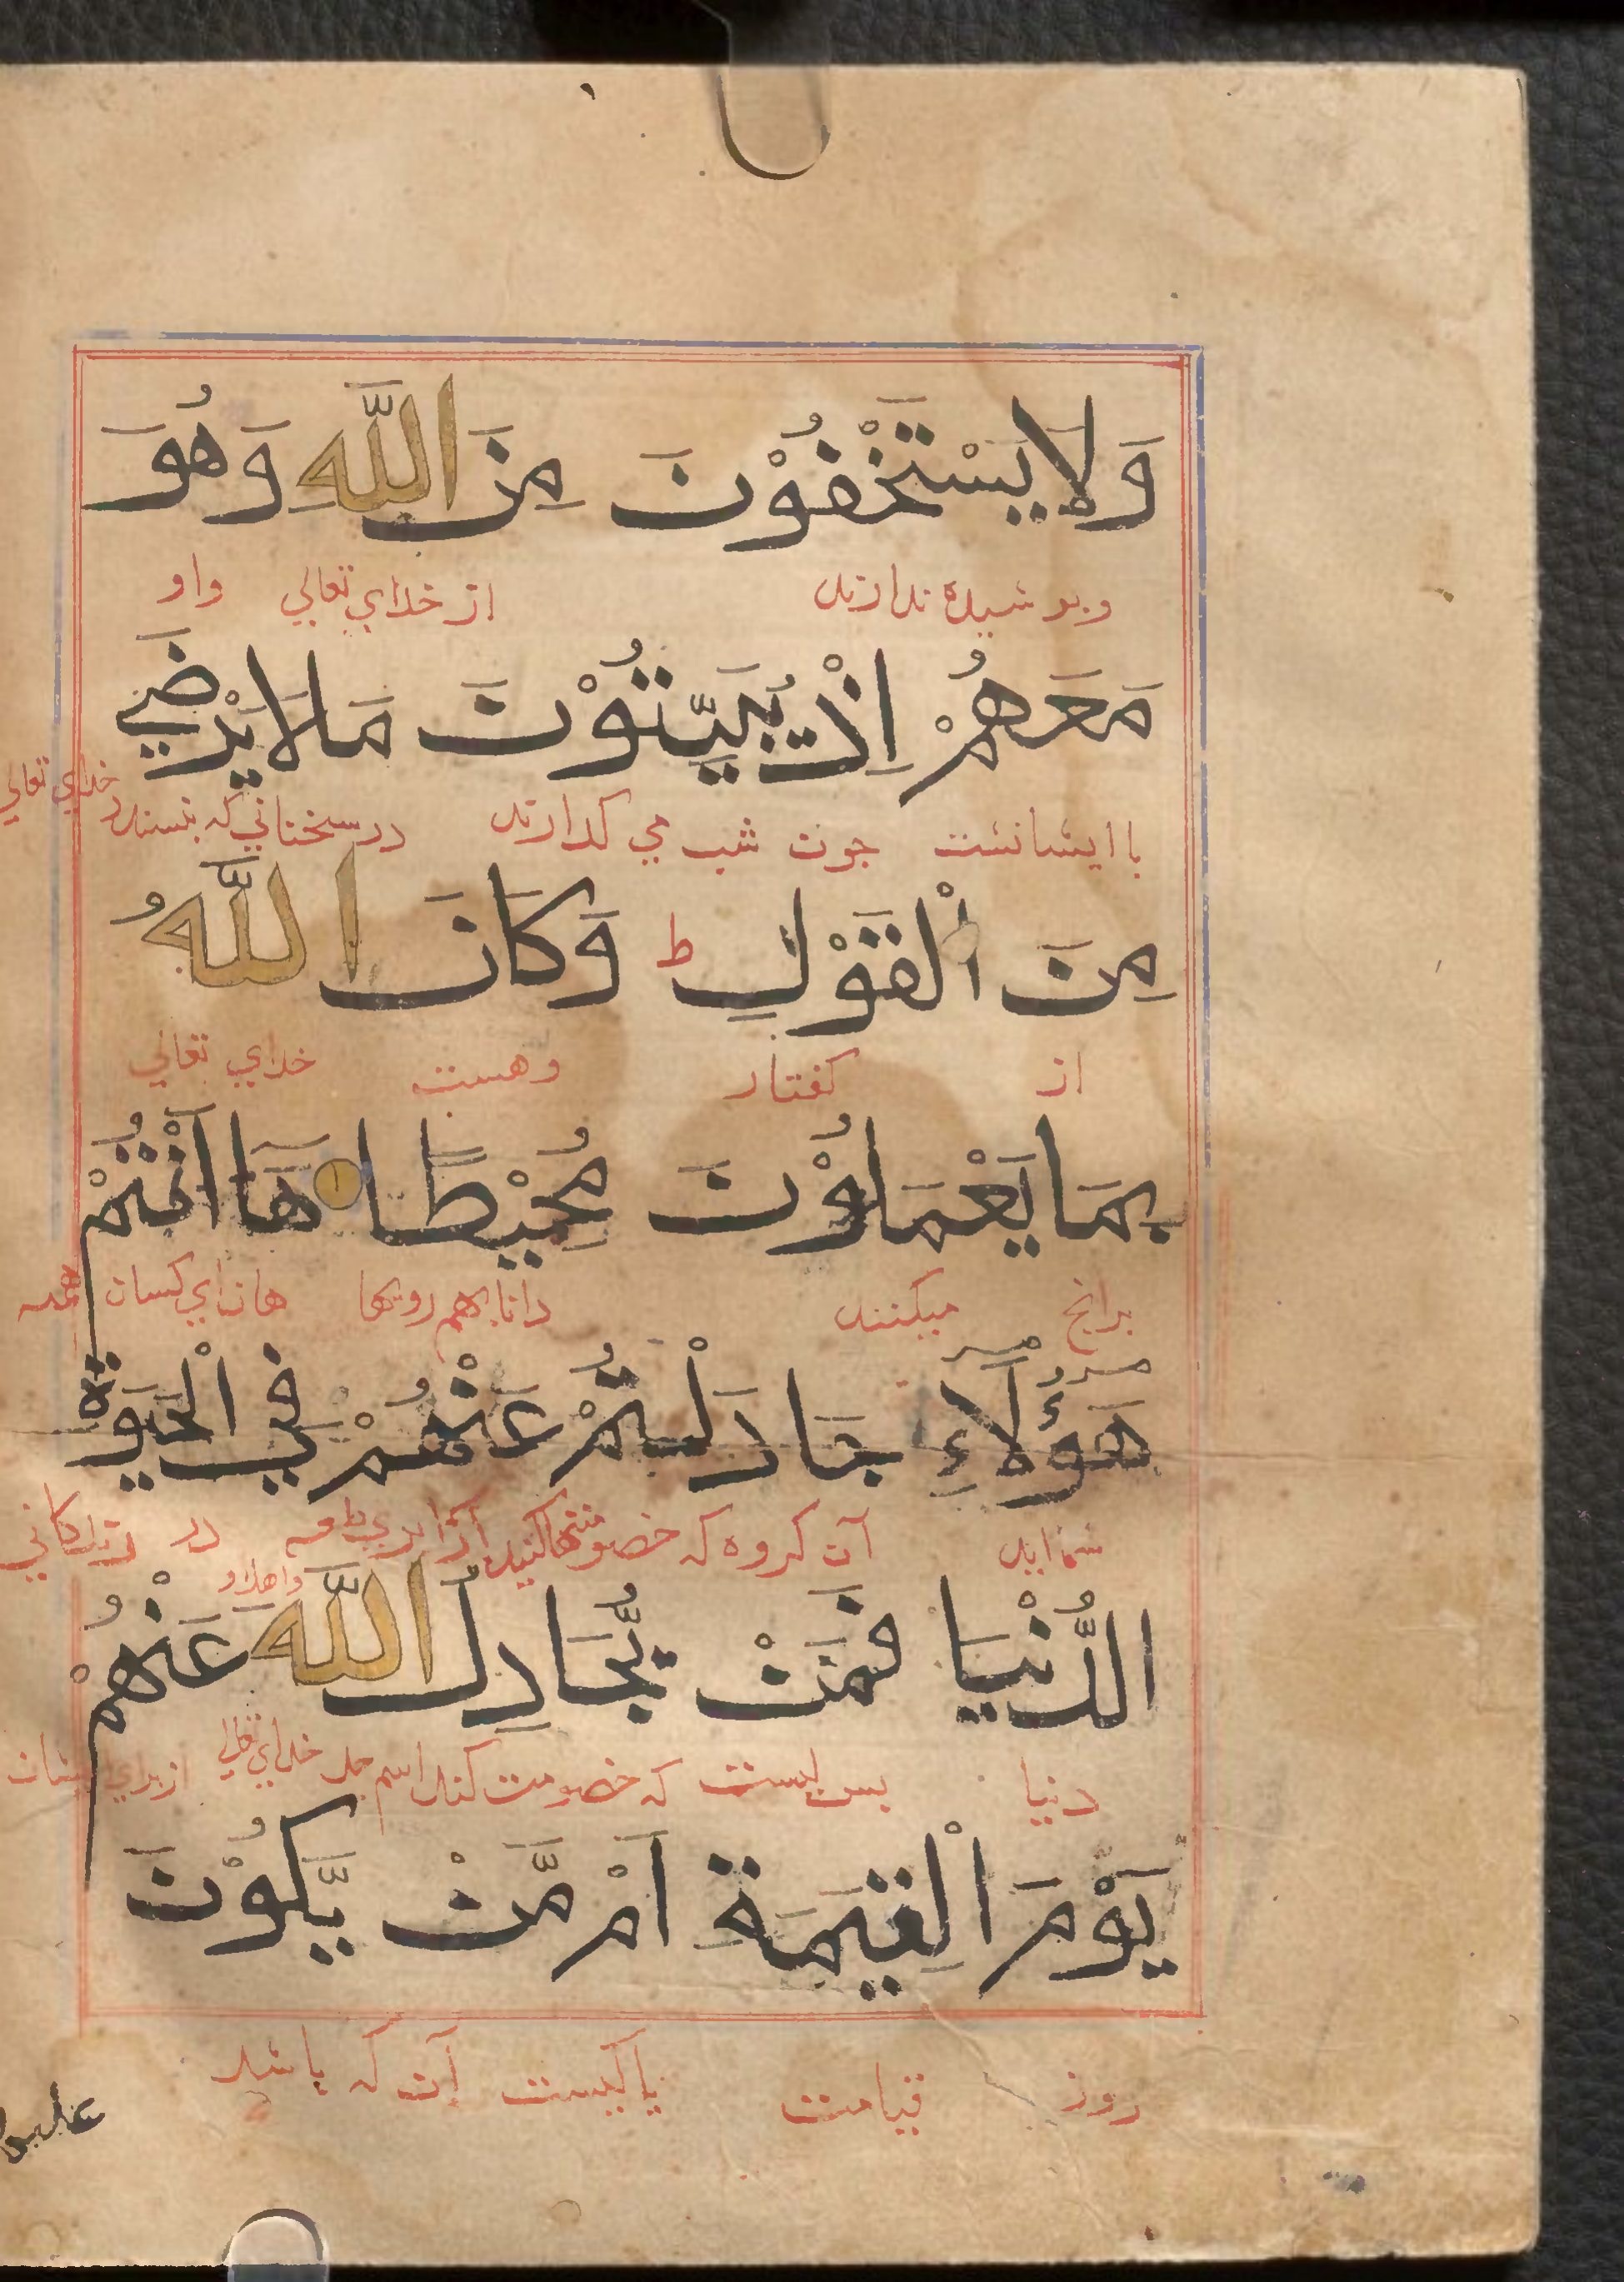 وَلَا يَسْتَخْفُوْنَ مِنَ اللّٰهِ وَهُوَ
وپوشیده ندارند از خدای تعالی واو
مَعَهُمْ اِذْ يُبَيِّتُوْنَ مَا لَا يَرْضٰي
باایشانست چون شب می گذارند در سخنانی که نپسندد خدای تعالی
مِنَ الْقَوْلِ ط وَكَانَ اللّٰهُ
از گفتار وهست خدای تعالی
بِمَا يَعْمَلُوْنَ مُحِيْطًا هَآ اَنْتُمْ
برانچ میکنند دانا بهم رویها هان ای کسان همه
هٰٓؤُلَآءِ جَادَلْتُمْ عَنْهُمْ فِي الْحَيٰوةِ
شماایید آن گروه که خصومتها کنید از برای طعمه در زندگانی
واهل او
الدُّنْيَا فَمَنْ يُّجَادِلُ اللّٰهَ عَنْهُمْ
دنیا پس کیست که خصومت کند خدای تعالی از برای ایشان
يَوْمَ الْقِيٰمَةِ اَمْ مَّنْ يَّكُوْنُ
روز قیامت یا کیست آن که باشد
علیهم